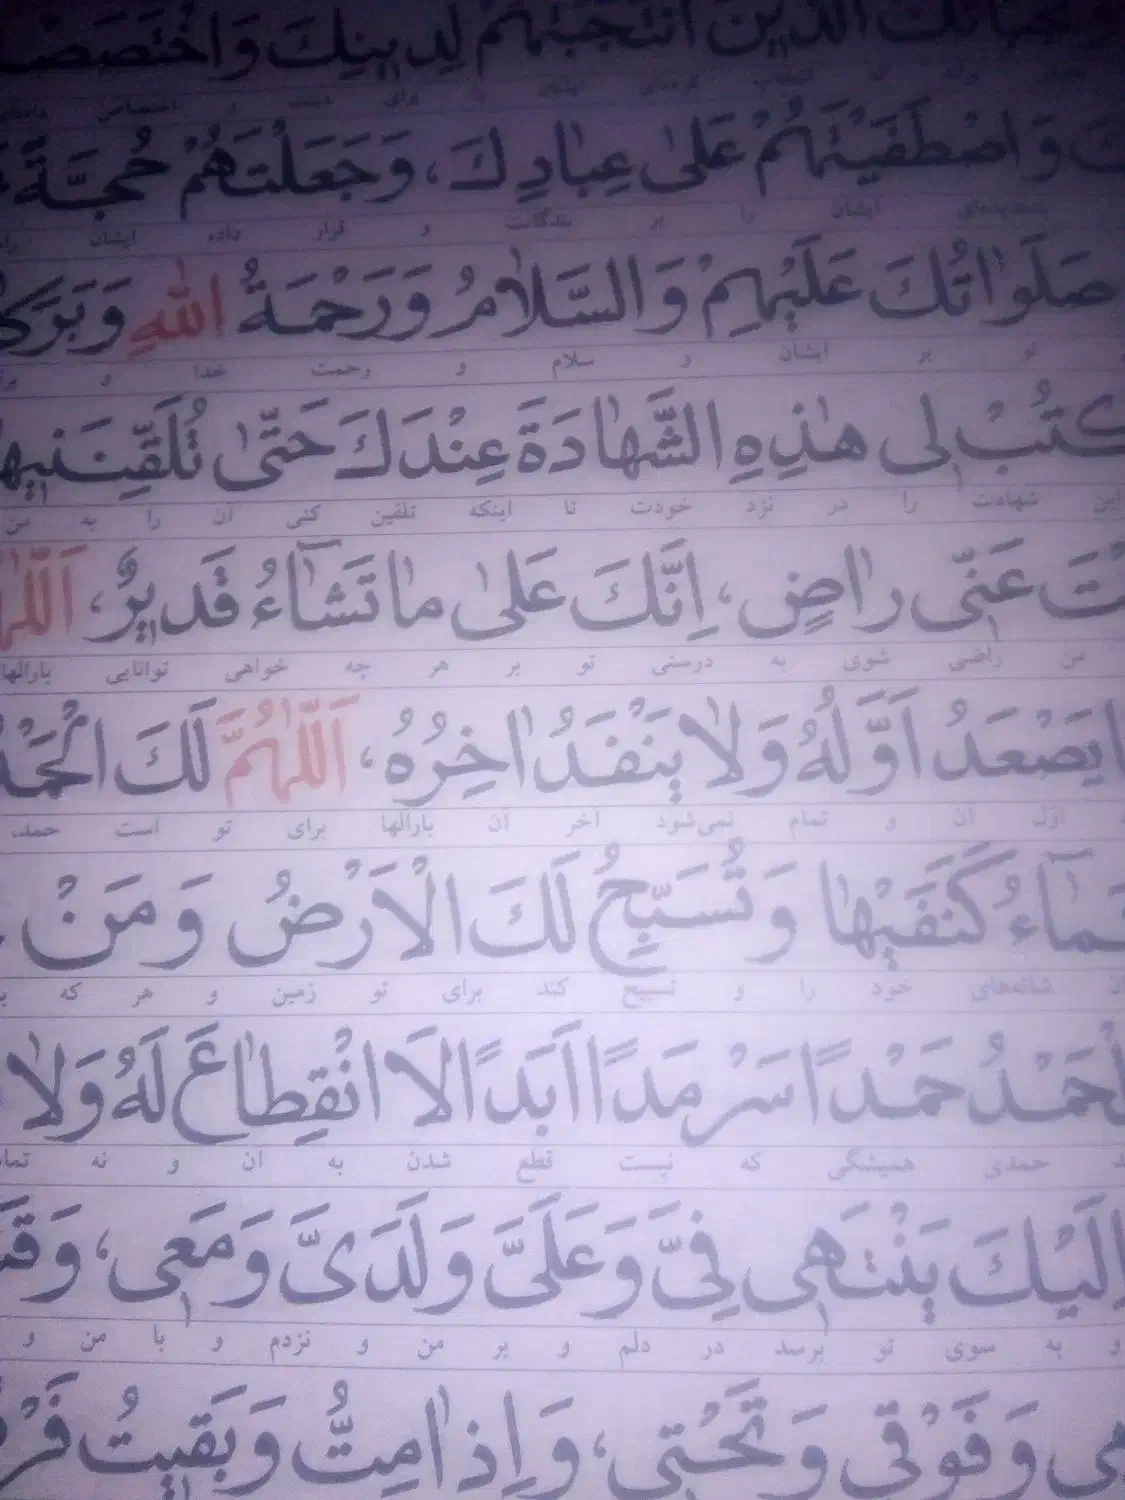 الَّذِينَ انْتَجَبْتَهُمْ لِدِينِكَ وَاخْتَصَصْ
وَاصْطَفَيْتَهُمْ عَلىٰ عِبٰادِكَ، وَجَعَلْتَهُمْ حُجَّةً
ایشان را بر بندگانت و قرار داده ایشان را
صَلَوٰاتُكَ عَلَيْهِمْ وَالسَّلٰامُ وَرَحْمَةُ اللهِ وَبَرَكٰ
تو بر ایشان و سلام و رحمت خدا و
كْتُبْ لِى هٰذِهِ الشَّهٰادَةَ عِنْدَكَ حَتّىٰ تُلَقِّنَنِيهٰا
این شهادت را در نزد خودت تا اینکه تلقین کنی آن را به من
تَ عَنّى رٰاضٍ، اِنَّكَ عَلىٰ مٰا تَشٰاءُ قَدِيرٌ، اَللّٰهُ
من راضی شوی به درستی تو بر هر چه خواهی توانایی بارالها
يَصْعَدُ اَوَّلُهُ وَلٰا يَنْفَدُ اٰخِرُهُ، اَللّٰهُمَّ لَكَ الْحَمْدُ
اول آن و تمام نمی‌شود آخر آن بارالها برای تو است حمد
مٰاءُ كَنَفَيْهٰا وَتُسَبِّحُ لَكَ الْاَرْضُ وَمَنْ
شانه‌های خود را و تسبیح کند برای تو زمین و هر که
لْحَمْدُ حَمْدًا سَرْمَدًا اَبَدًا لَا انْقِطٰاعَ لَهُ وَلٰا
حمدی همیشگی که نیست قطع شدن به آن و نه
اِلَيْكَ يَنْتَهِى فِىَّ وَعَلَىَّ وَلَدَىَّ وَمَعِى، وَقَ
و به سوی تو برسد در دلم و بر من و نزدم و با من و
وَفَوْقى وَتَحْتِى، وَاِذٰا مِتُّ وَبَقِيتُ فَرْ